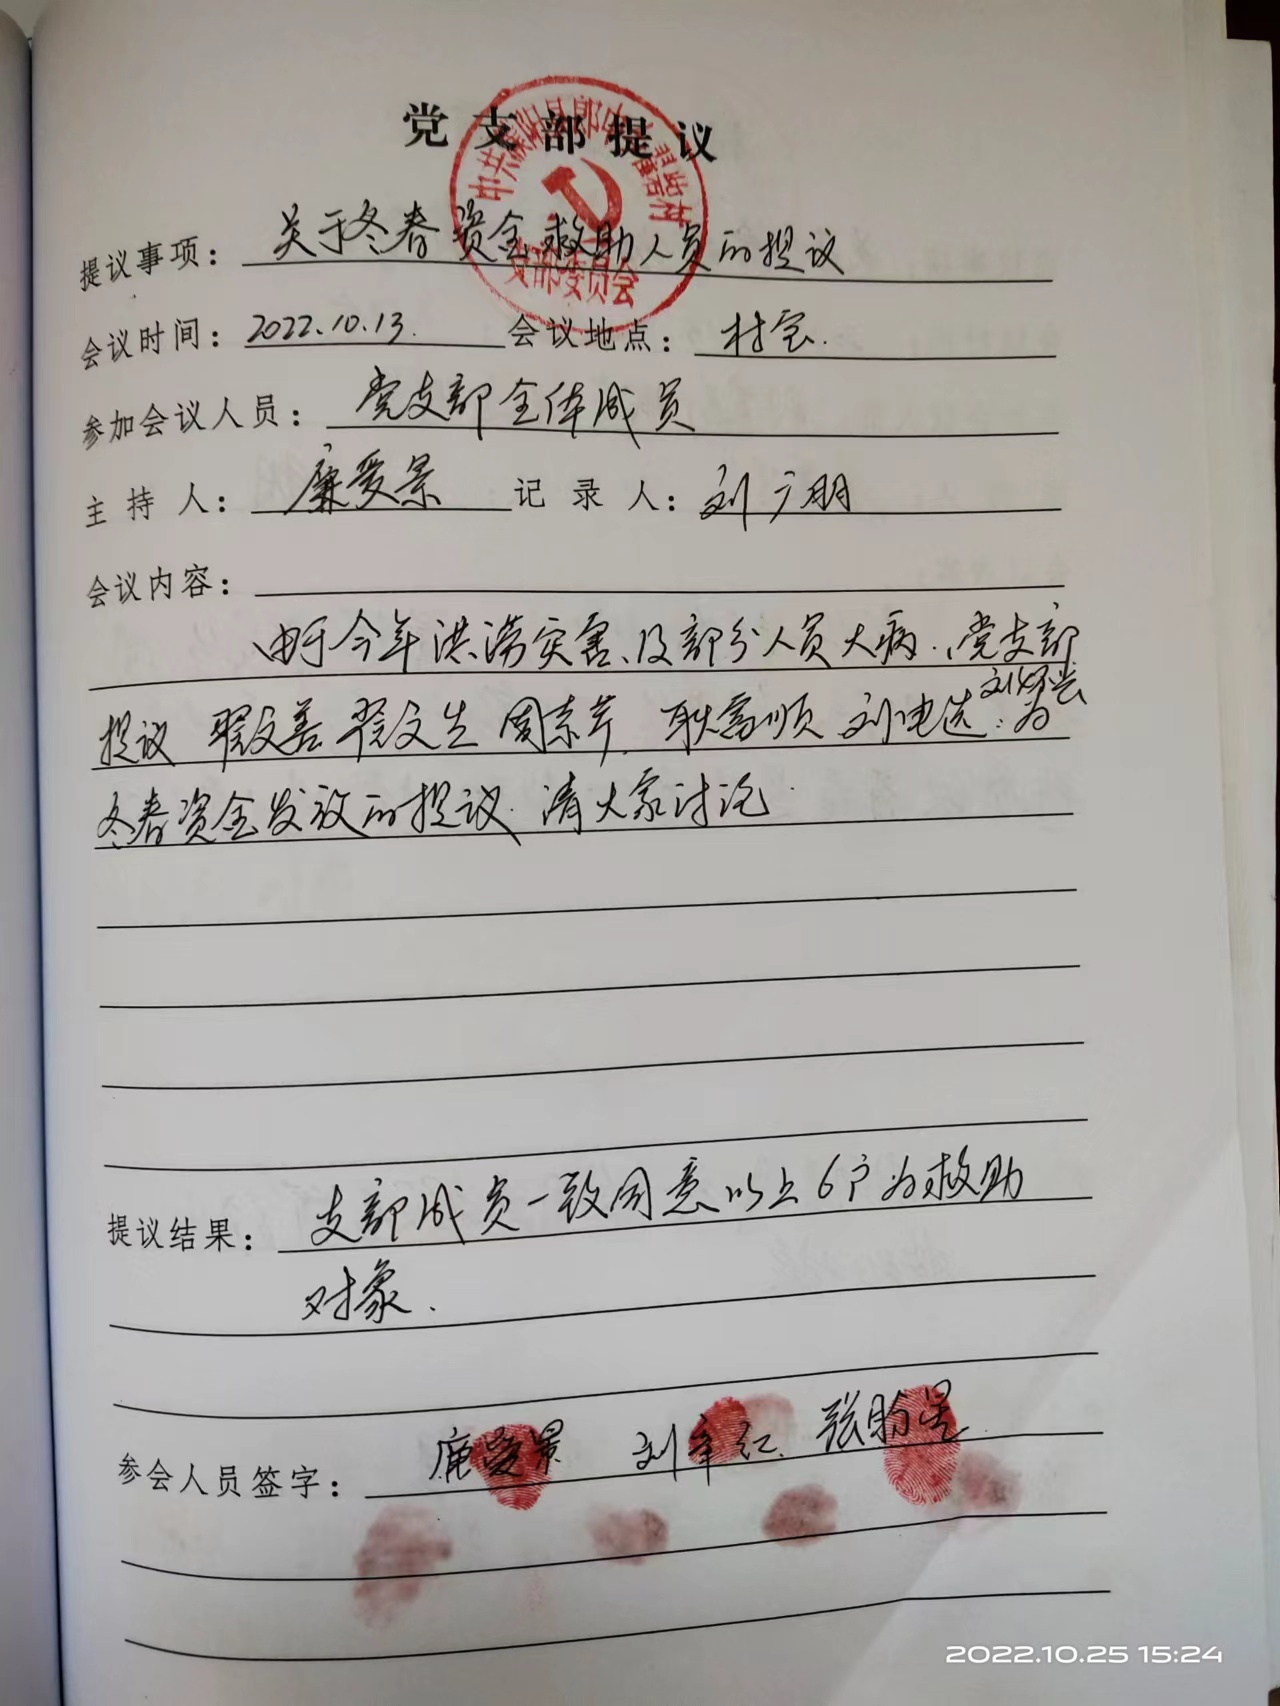 党支部提议
中共濮阳县郎中
村
支部委员会
提议事项：关于冬春资金救助人员的提议
会议时间：2022.10.13. 会议地点：村室.
参加会议人员：党支部全体成员
主持人：廉爱景 记录人：刘广朋
会议内容：
由于今年洪涝灾害、及部分人员大病.，党支部
刘怀兴
提议 翟文善 翟文生 周素芹. 耿富顺 刘电选. 为
冬春资金发放的提议. 请大家讨论.
提议结果：支部成员一致同意以上6户为救助
对象.
参会人员签字：廉爱景 刘章红. 张盼星.
2022.10.25 15:24